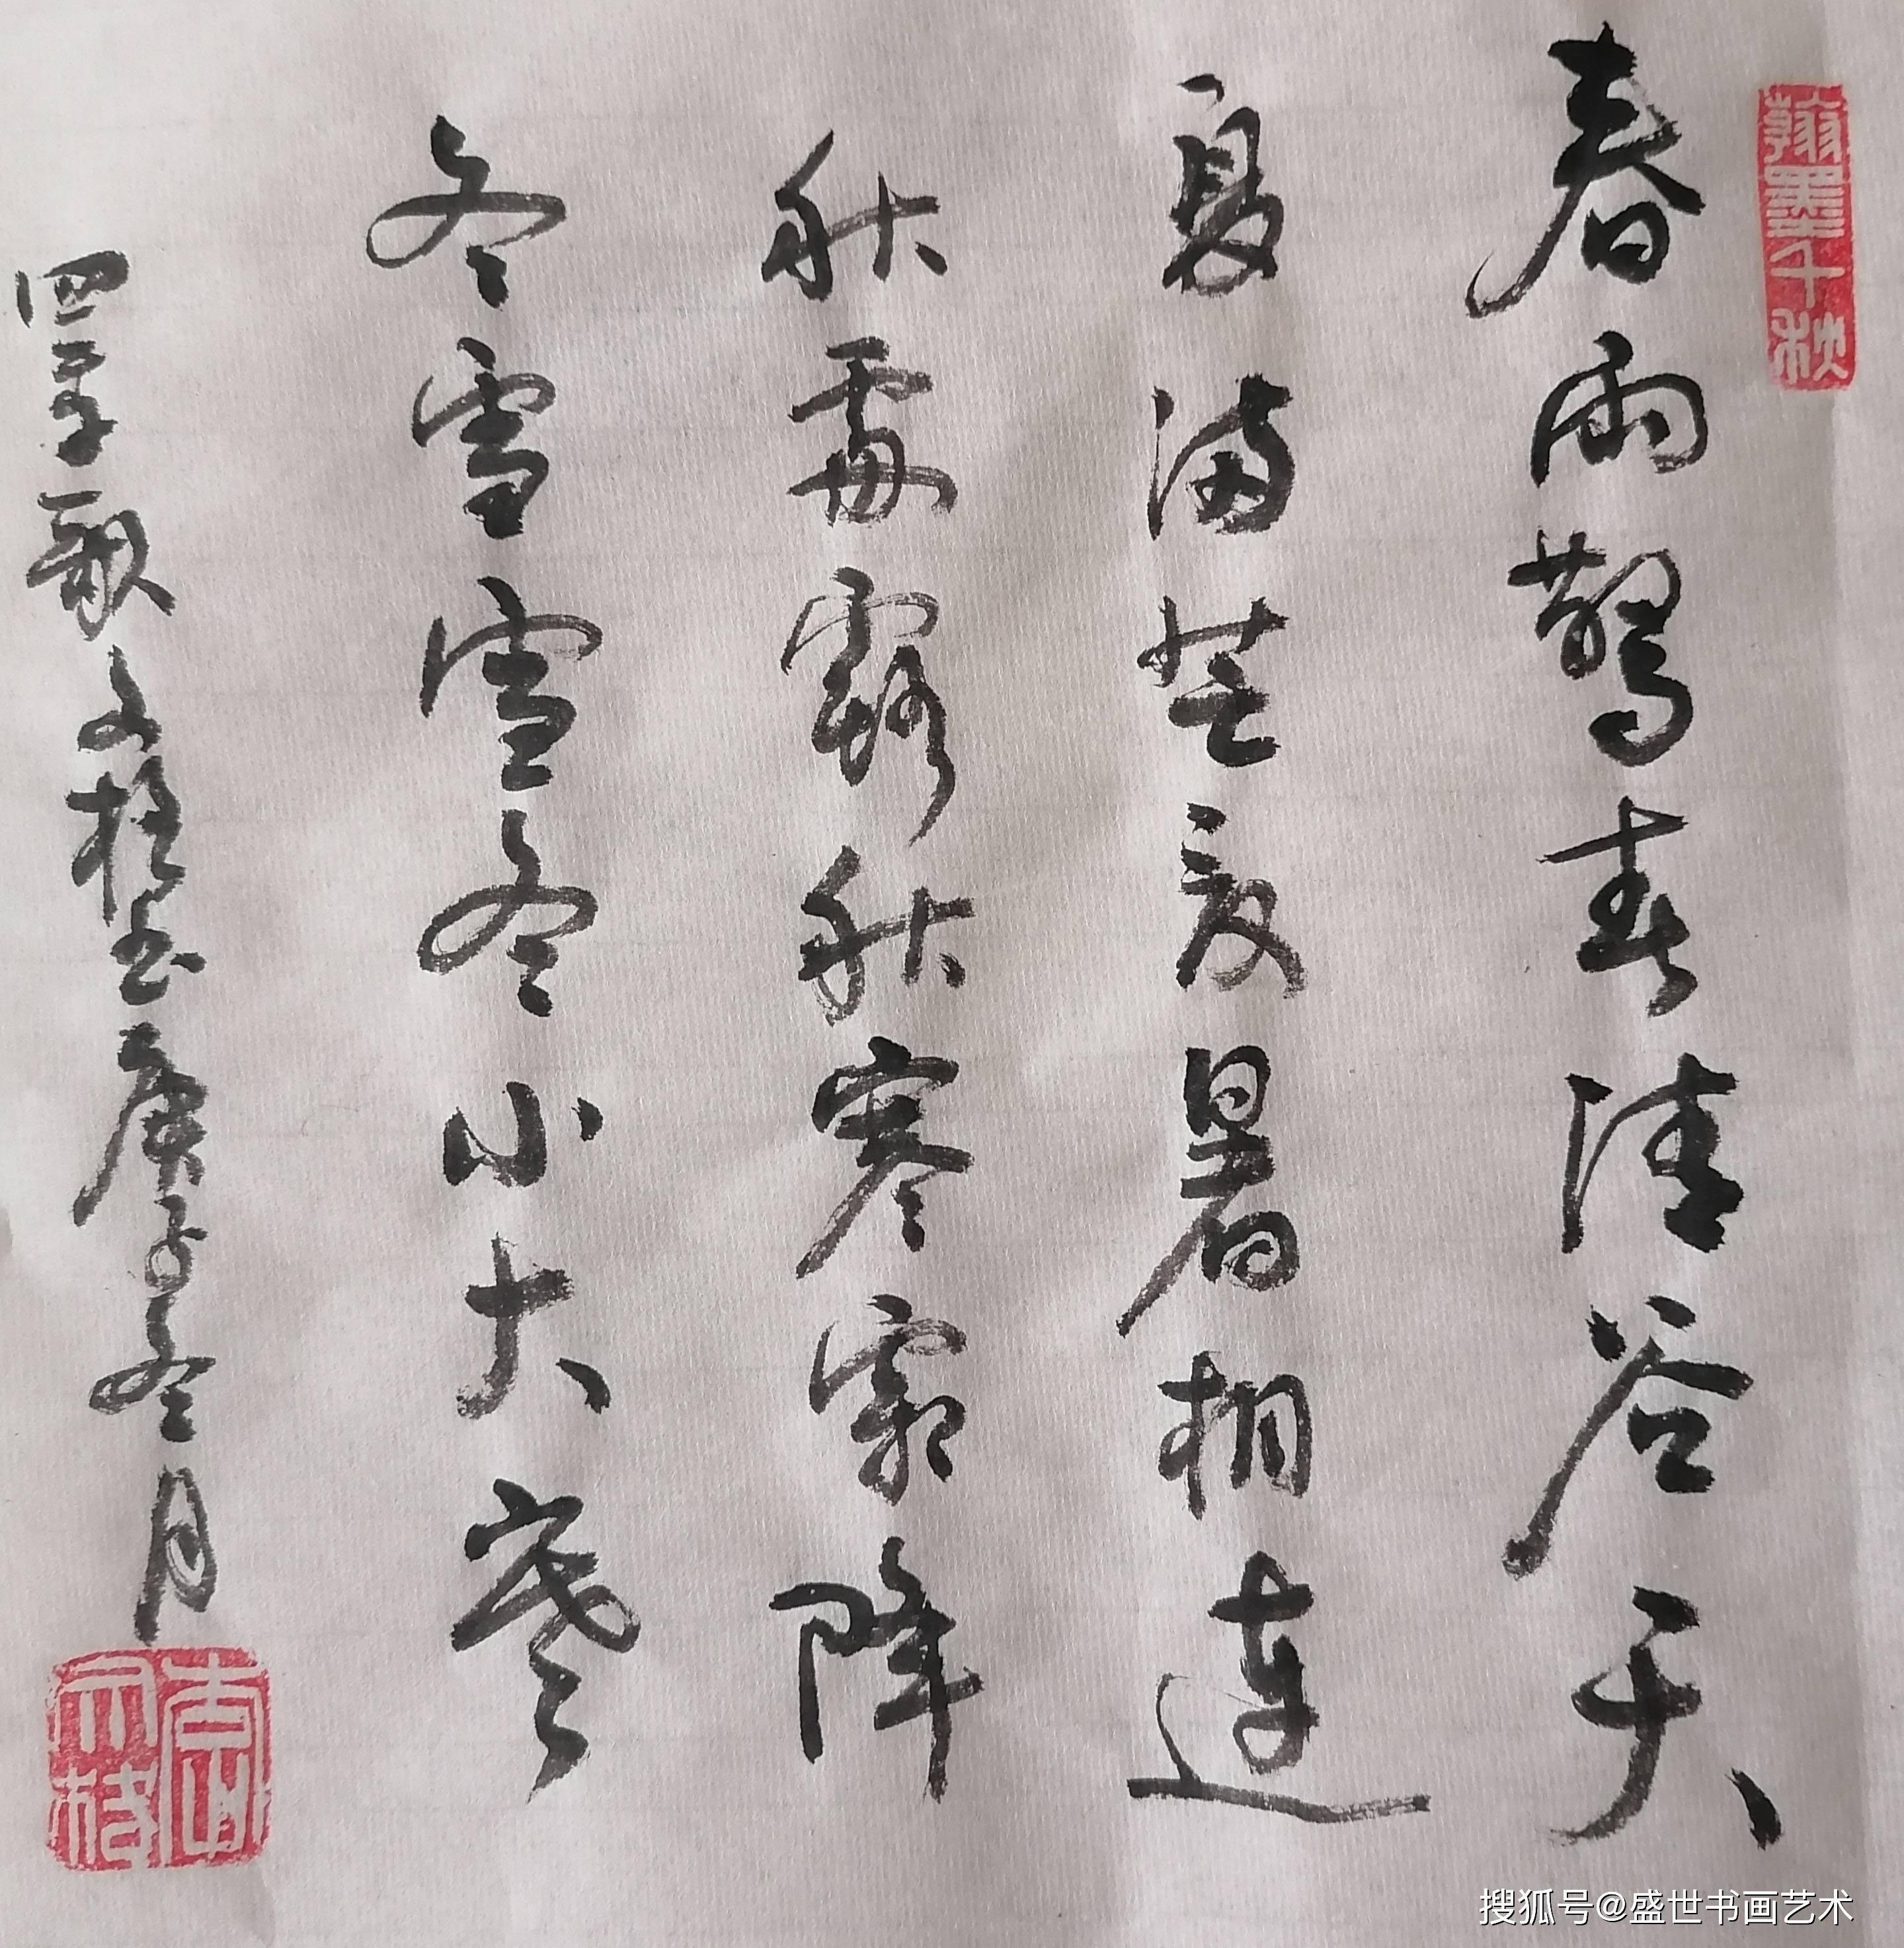 翰墨千秋
春雨驚春清谷天
夏满芒夏暑相連
秋處露秋寒霜降
冬雪雪冬小大寒
四季歌 文 书 庚子冬月
搜狐号@盛世书画艺术